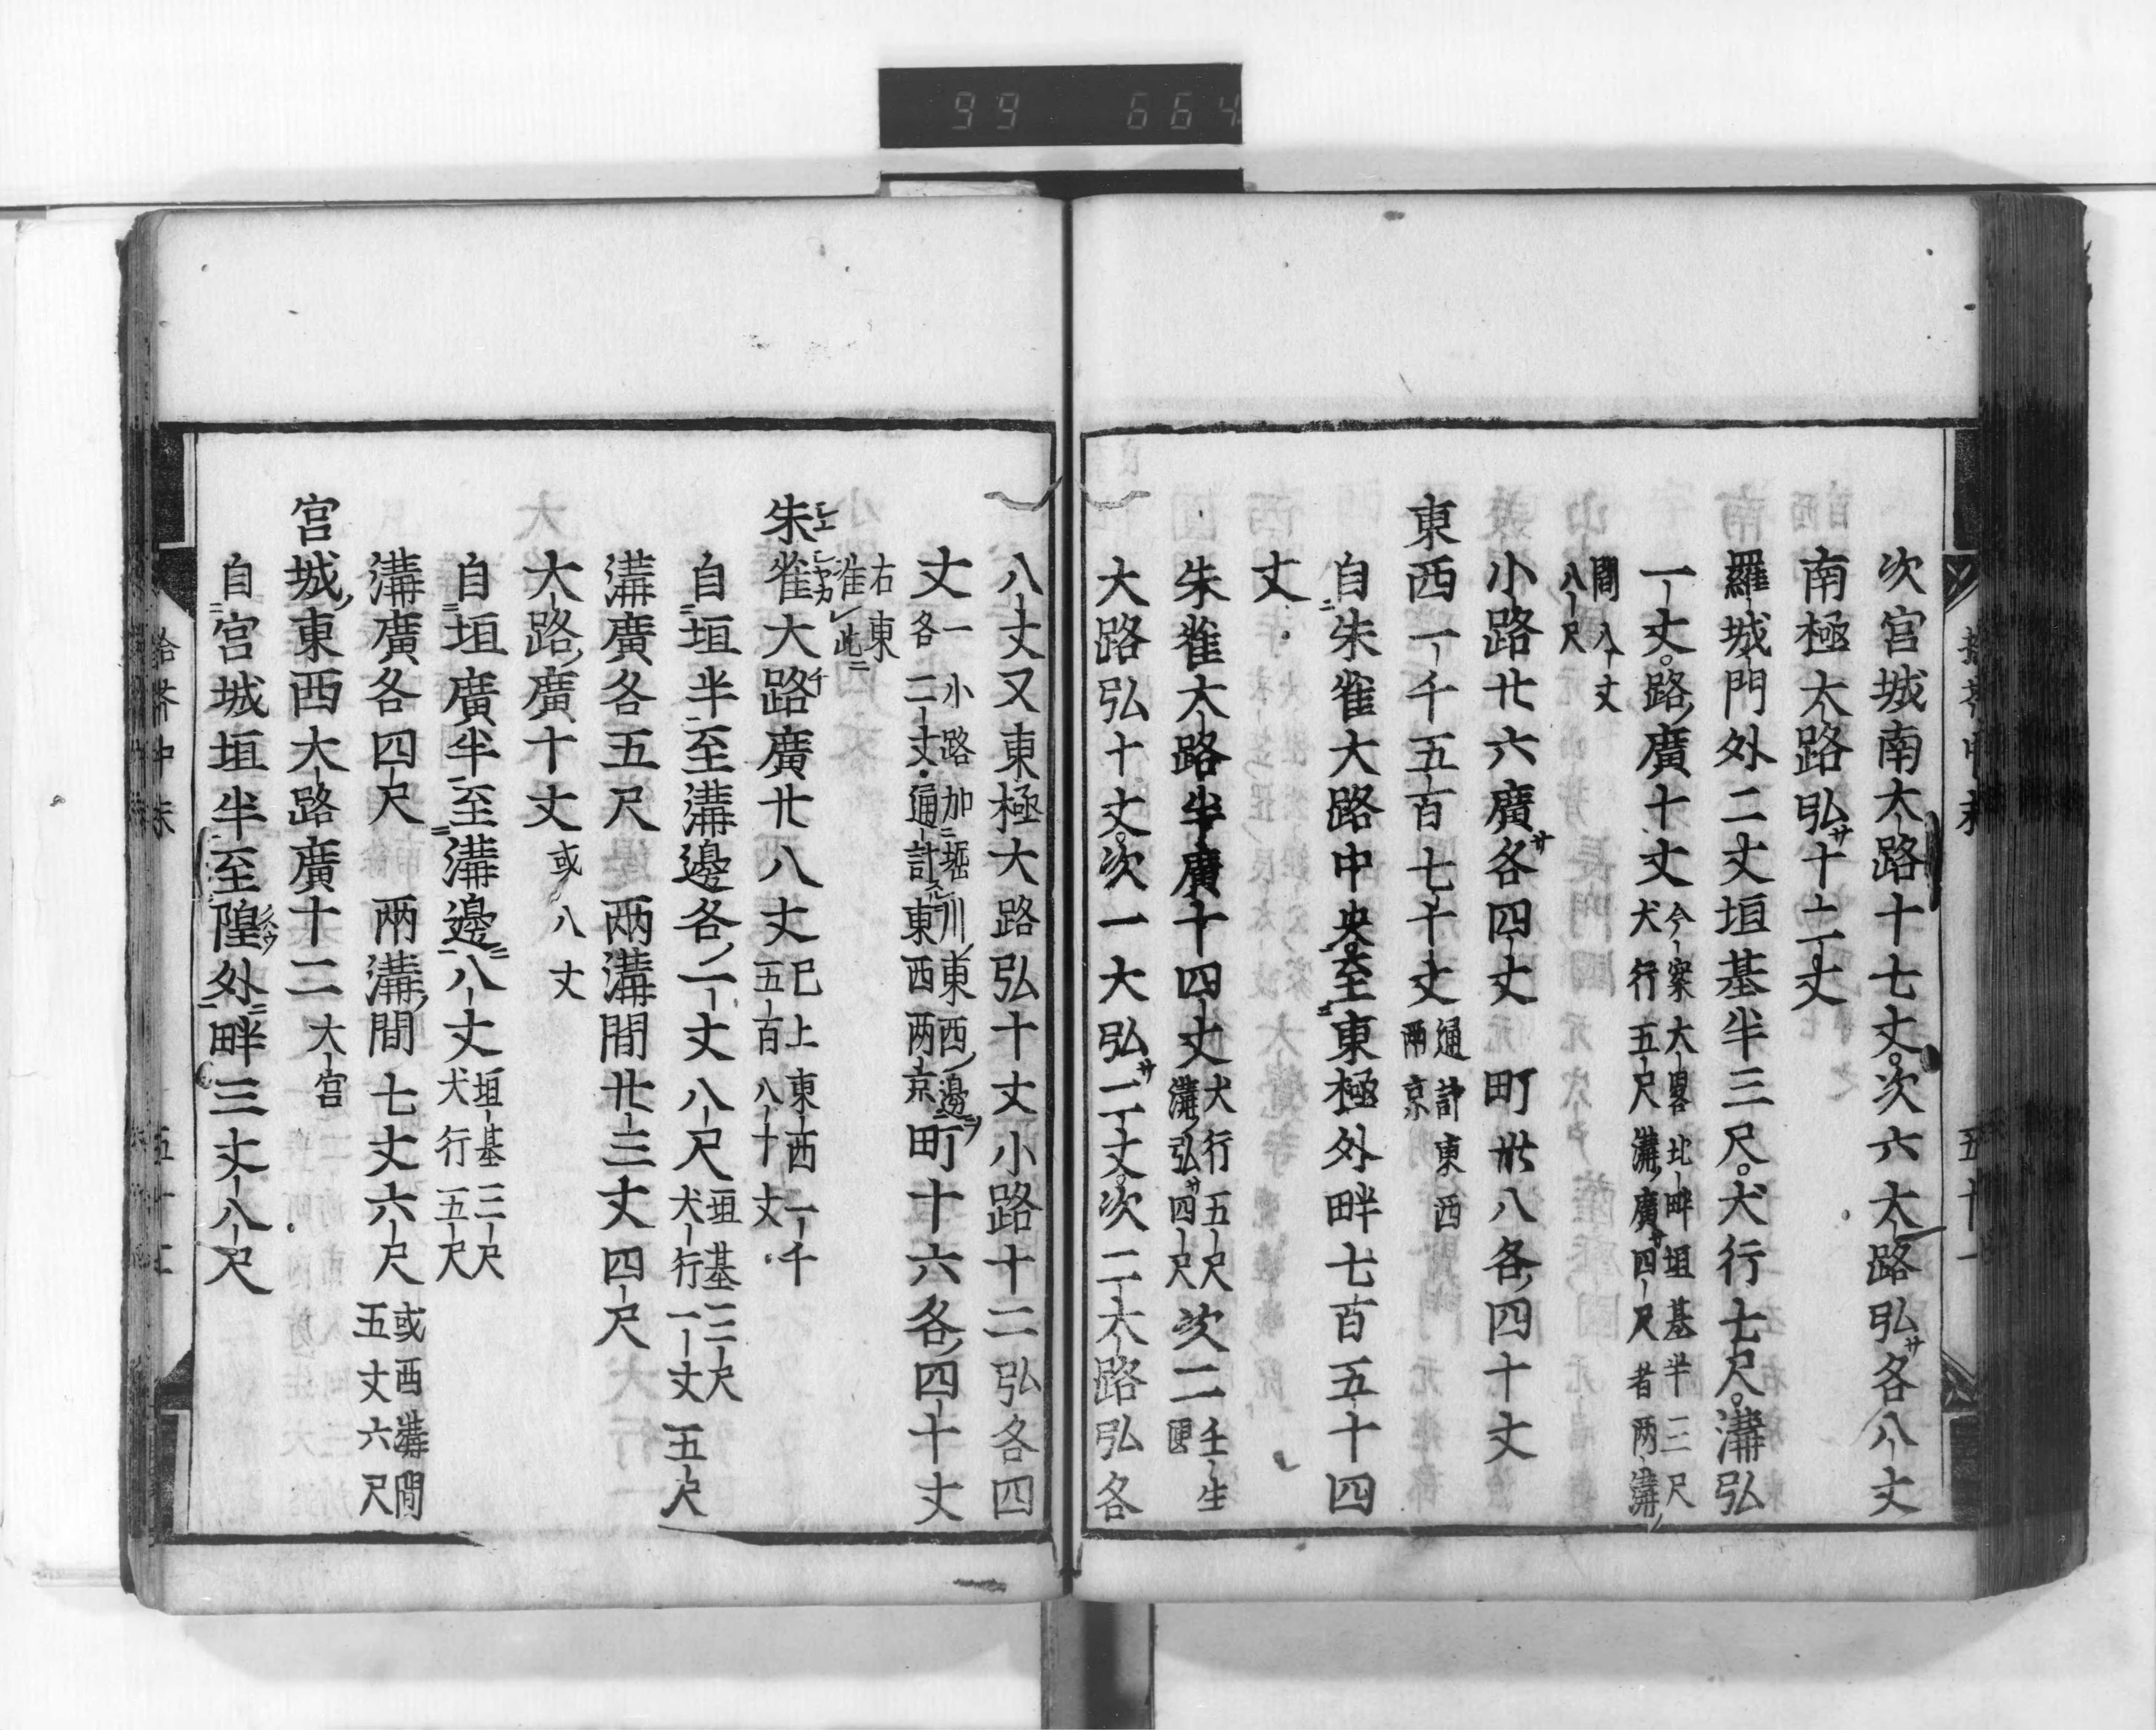 99 664
次宮城南大路十七丈次六大路弘サ各八丈
南極大路弘サ十二丈
羅城門外二丈垣基半三尺犬行七尺溝弘
一丈路廣十丈今案大畧北畔垣基半三尺
犬行五尺溝廣サ四尺者两溝
間八丈
八尺
小路廿六廣サ各四丈 町卅八各四十丈
東西一千五百七十丈通計東西
兩京
自朱雀大路中央至東極外畔七百五十四
丈
朱雀大路半廣十四丈犬行五尺
溝弘サ四尺次二壬生
大路弘十丈次一大弘サ二丈次二大路弘各
八丈又東極大路弘十丈小路十二弘各四
丈一小路加堀川東西邊
各二丈通計東西两京町十六各四十丈
右東
雀此
朱雀大路廣廿八丈巳上東西一千
五百八十丈
自垣半至溝邊各一丈八尺垣基三尺
犬行一丈五尺
溝廣各五尺 兩溝間廿三丈四尺
大路廣十丈或八丈
自垣廣半至溝邊八丈垣基三尺
犬行五尺
溝廣各四尺 兩溝間七丈六尺或西溝間
五丈六尺
宮城東西大路廣十二大宮
自宮城垣半至隍外畔三丈八尺